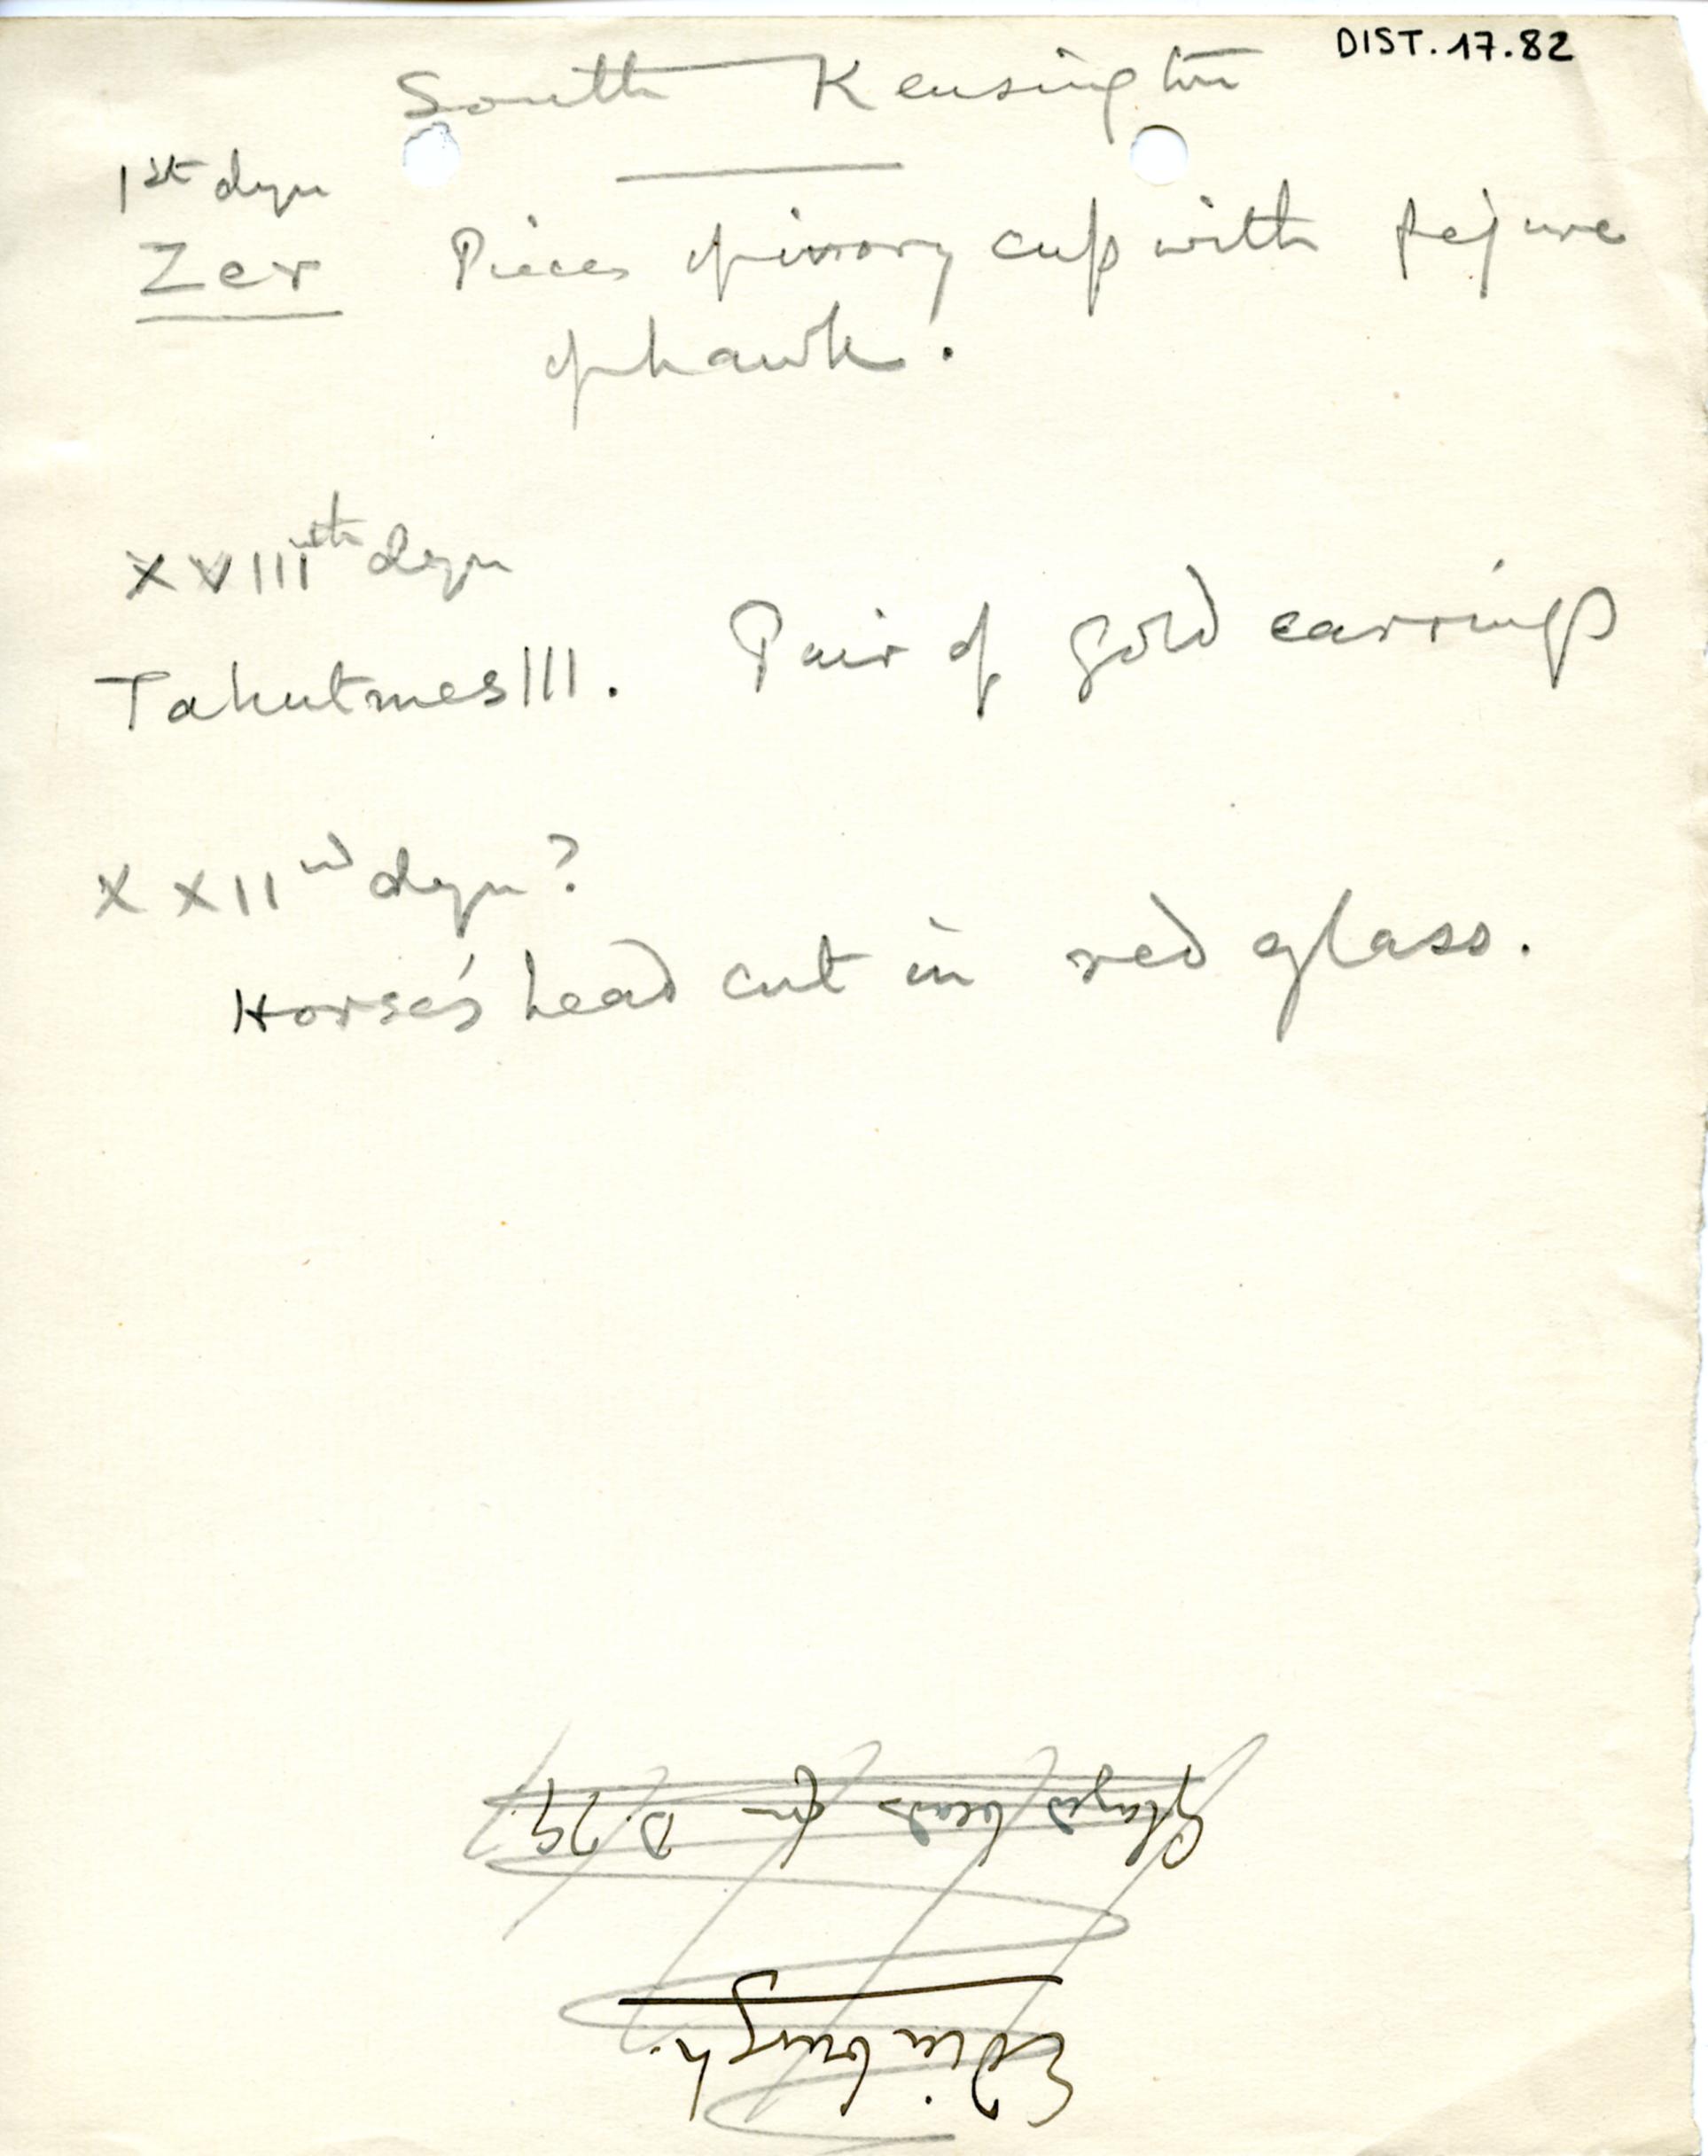 DIST. 17.82
South Kensington
1st dyn
Zer Pieces of ivory cup with figure
of hawk.
XVIIIth dyn
Tahutmes III. Pair of gold earrings
XXIInd dyn?
Horse's head cut in red glass.
Edinburgh.
Glazed beads fm D.29.